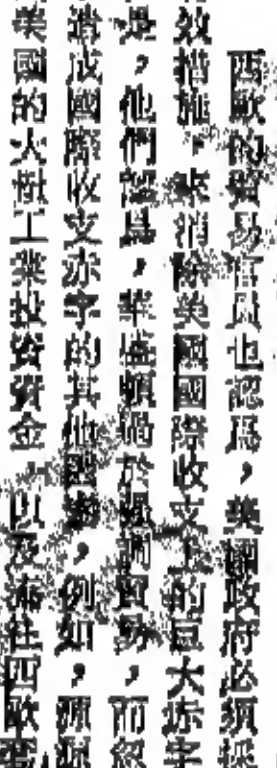 西歐的貿易官員也認爲，美國政府必須採
效措施，來消除美國國際收支上的巨大赤字
是，他們認爲，華盛頓過於強調貿易，而忽
造成國際收支赤字的其他因素，例如，源源
美國的大批工業投資資金，以及流往西歐